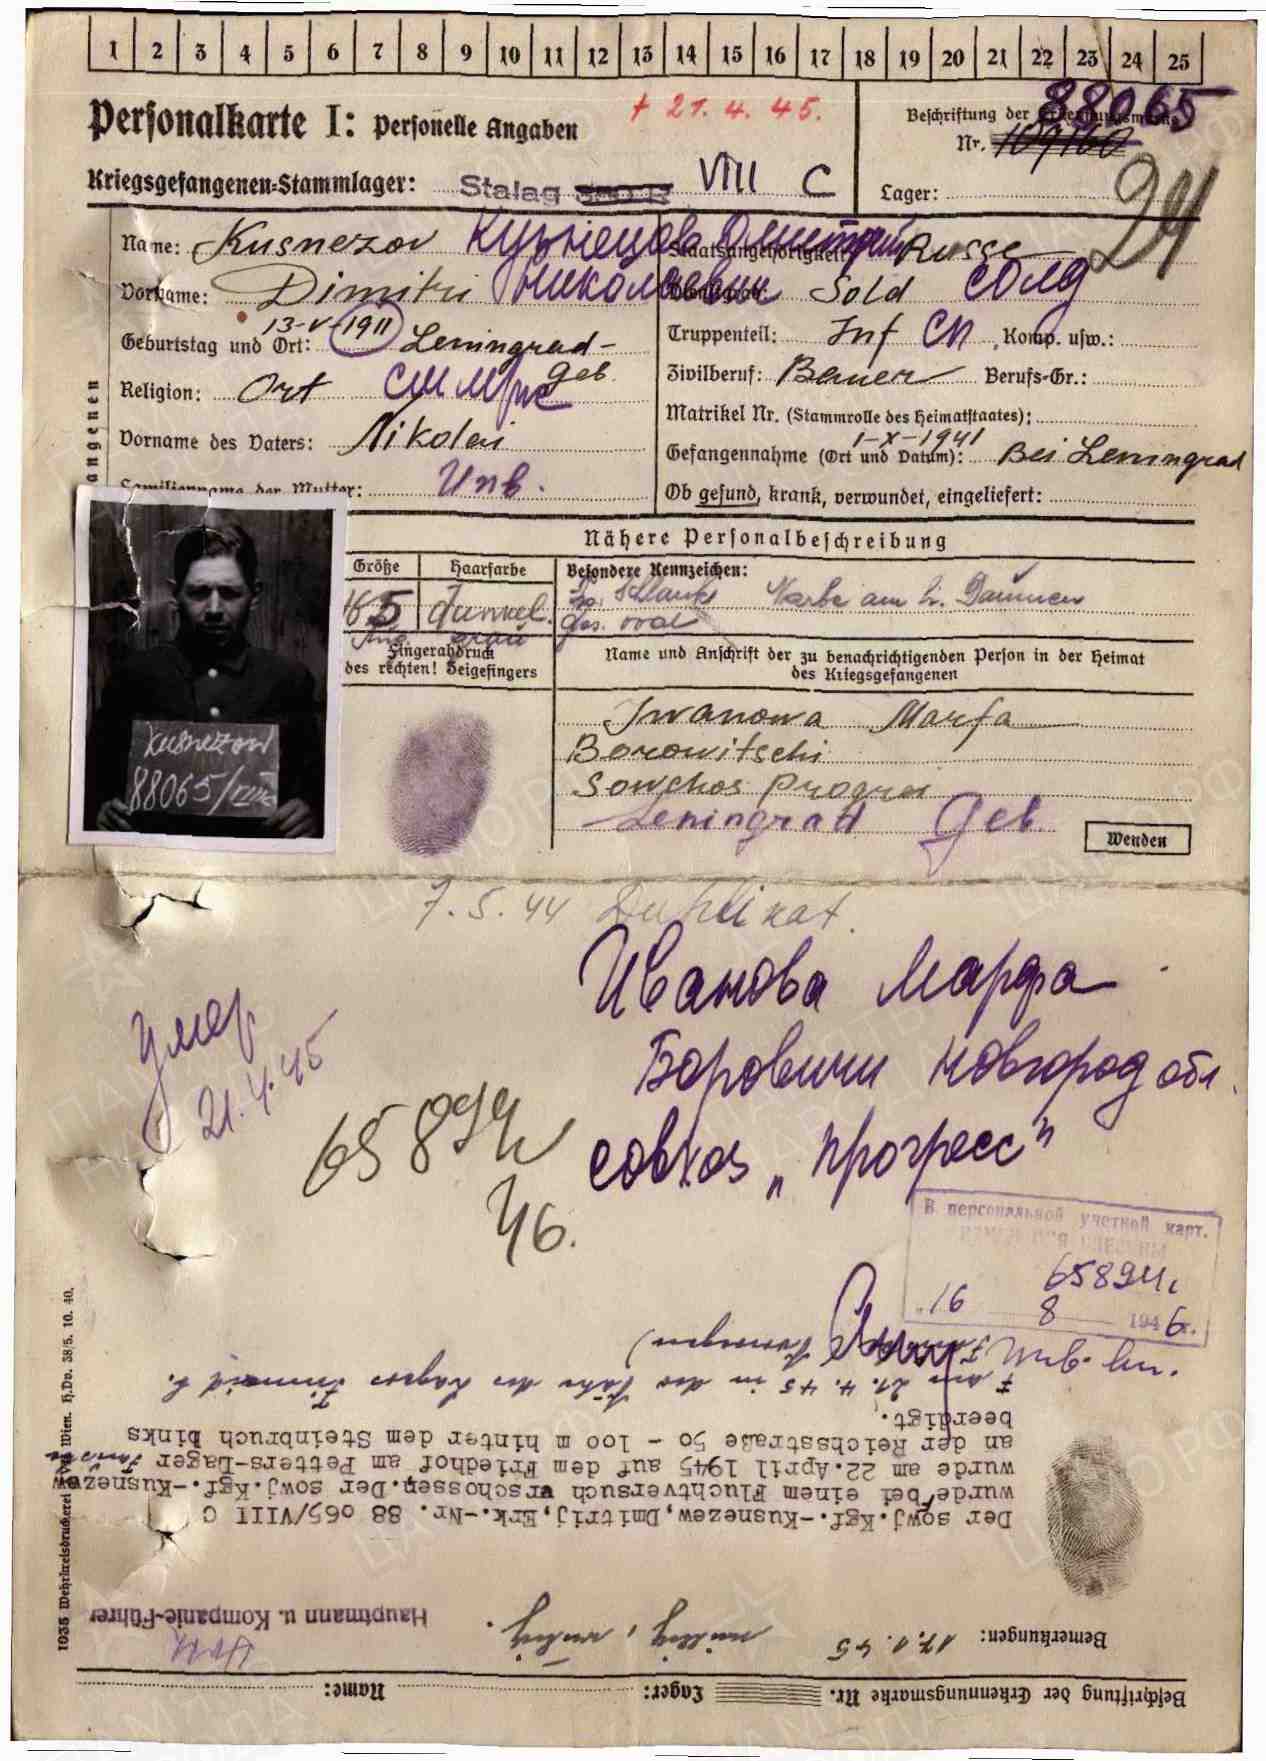 1 2 3 4 5 6 7 8 9 10 11 12 13 14 15 16 17 18 19 20 21 22 23 24 25
Personalkarte I: Personelle Angaben
+ 21. 4. 45.
Beschriftung der Erkennungsmarke
88065
Nr. 107160
Kriegsgefangenen-Stammlager: Stalag VIII C
Lager:
24
Name: Kusnezov Кузнецов Дмитрий
Staatsangehörigkeit: Russe
Vorname: Dimitri Николаевич
Dienstgrad: Sold солд
Geburtstag und Ort: 13-V-1911 Leningrad-
Geb.
Truppenteil: Inf СП Komp. usw.:
Religion: Ort
Zivilberuf: Bauer Berufs-Gr.:
Matrikel Nr. (Stammrolle des Heimatstaates):
Vorname des Vaters: Nikolai
Gefangennahme (Ort und Datum): 1-X-1941 Bei Leningrad
Familienname der Mutter: Unb.
Ob gesund, krank, verwundet, eingeliefert:
angenen
Nähere Personalbeschreibung
Größe Haarfarbe Besondere Kennzeichen:
165 dunkel.
Schlank Narbe am l. Daumen
Ges. oval
grau
Fingerabdruck
des rechten! Zeigefingers
Name und Anschrift der zu benachrichtigenden Person in der Heimat
des Kriegsgefangenen
Iwanowa Marfa
Borowitschi
Sowchos Progres
Leningrad Geb.
Wenden
Kusnezow
88065/VIIIC
7.5.44 Duplikat.
Иванова Марфа
Боровичи Новгород обл.
совхоз „Прогресс"
умер
21.4.45
65894и
46.
В персональной учетной карт.
65894и
16 8 1946г.
+ am 21.4.45 in der Nähe des Lagers
Der sowj.Kgf.-Kusnezew,Dmitrij,Erk.-Nr. 88 065/VIII C
wurde bei einem Fluchtversuch erschossen.Der sowj.Kgf.-Kusnezew
wurde am 22.April 1945 auf dem Friedhof am Petters-Lager
an der Reichsstraße 50 - 100 m hinter dem Steinbruch links
beerdigt.
Hauptmann u. Kompanie-Führer
Bemerkungen: 17.1.45 willig, ruhig.
Beschriftung der Erkennungsmarke Nr. Lager: Name:
1035 Wehrkreisdruckerei Wien. H.Dv. 38/5. 10. 40.